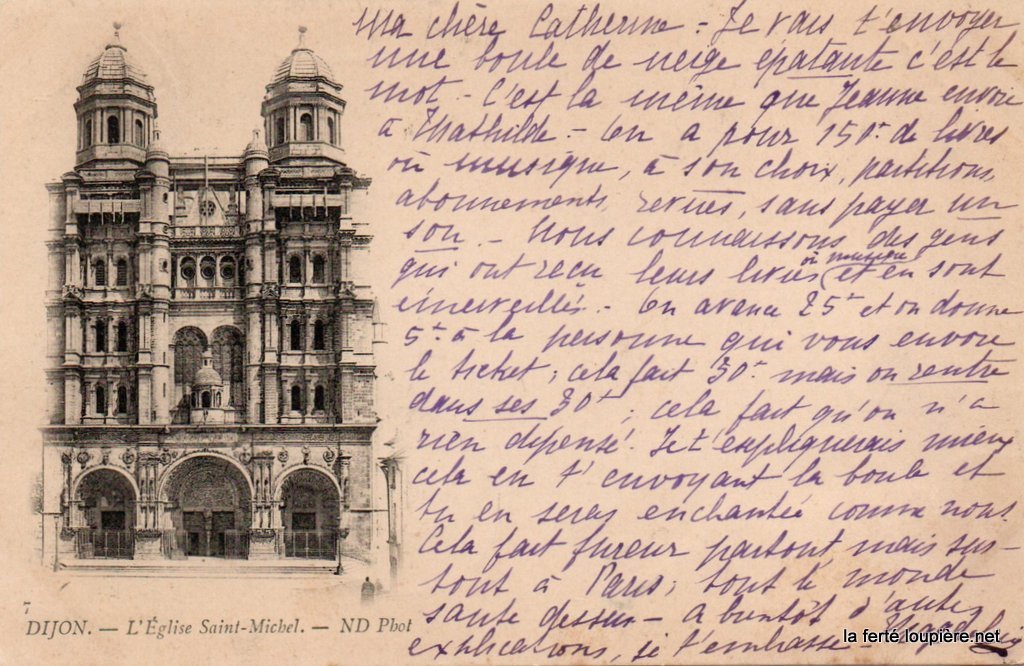 Ma chère Catherine - Je vais t'envoyer
une boule de neige épatante c'est le
mot. - C'est la même que Jeanne envoie
à Mathilde - On a pour 150f de livres
ou musique, à son choix, partitions,
abonnements, revues, sans payer un
son. - Nous connaissons des gens
qui ont reçu leurs livres (ou musique) et en sont
émerveillés. - On avance 25f et on donne
5f à la personne qui vous envoie
le ticket ; cela fait 30f mais on rentre
dans ses 30f ; cela fait qu'on n'a
rien dépensé. Je t'expliquerais mieux
cela en t'envoyant la boule et
tu en seras enchantée comme nous.
Cela fait fureur partout, mais sur-
tout à Paris ; tout le monde
saute dessus - à bientôt d'autes
explications, je t'embrasse -
7
DIJON. — L'Église Saint-Michel. — ND Phot
la ferté loupière.net